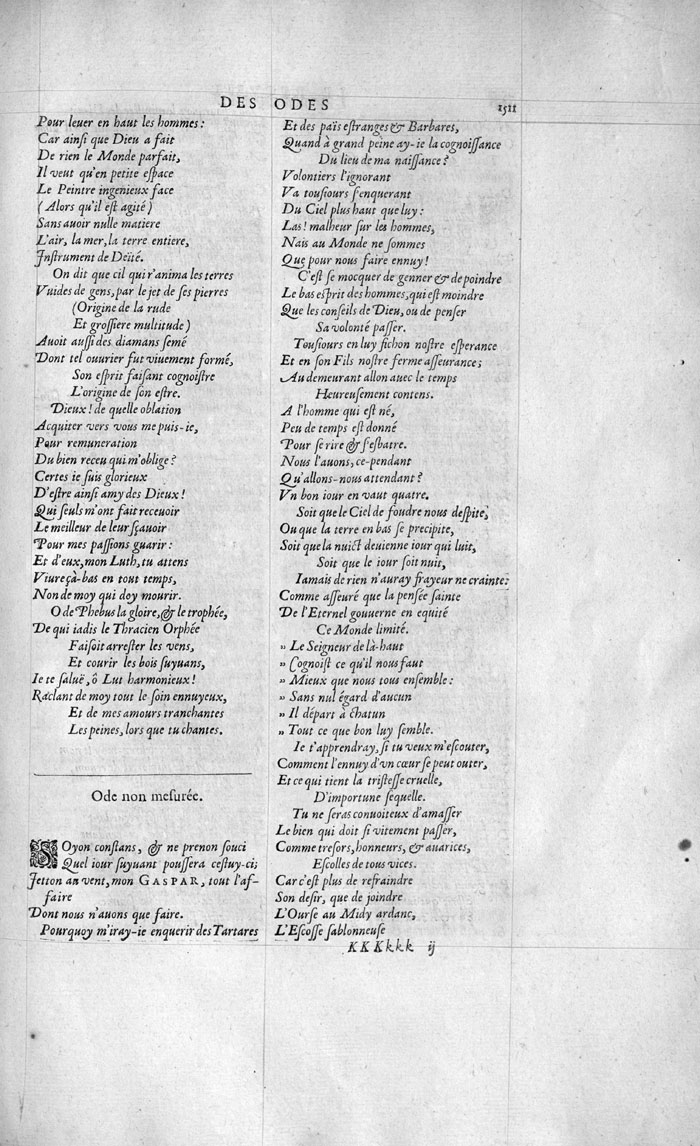 DES ODES 1511
Pour leuer en haut les hommes :
Car ainſi que Dieu a fait
De rien le Monde parfait,
Il veut qu'en petite eſpace
Le Peintre ingenieux face
(Alors qu'il eſt agité)
Sans auoir nulle matiere
L'air, la mer, la terre entiere,
Inſtrument de Deïté.
On dit que cil qui r'anima les terres
Vuides de gens, par le jet de ſes pierres
(Origine de la rude
Et groſſiere multitude)
Auoit auſſi des diamans ſemé
Dont tel ouurier fut viuement formé,
Son eſprit faiſant cognoiſtre
L'origine de ſon eſtre.
Dieux ! de quelle oblation
Acquiter vers vous me puis-ie,
Pour remuneration
Du bien receu qui m'oblige ?
Certes ie ſuis glorieux
D'eſtre ainſi amy des Dieux !
Qui ſeuls m'ont fait receuoir
Le meilleur de leur ſçauoir
Pour mes paſſions guarir :
Et d'eux, mon Luth, tu attens
Viure çà-bas en tout temps,
Non de moy qui doy mourir.
O de Phebus la gloire, & le trophée,
De qui iadis le Thracien Orphée
Faiſoit arreſter les vens,
Et courir les bois ſuyuans,
Ie te ſaluë, ô Lut harmonieux !
Raclant de moy tout le ſoin ennuyeux,
Et de mes amours tranchantes
Les peines, lors que tu chantes.
Ode non meſurée.
SOyon conſtans, & ne prenon ſouci
Quel iour ſuyuant pouſſera ceſtuy-ci;
Jetton au vent, mon GASPAR, tout l'af-
faire
Dont nous n'auons que faire.
Pourquoy m'iray-ie enquerir des Tartares
Et des païs eſtranges & Barbares,
Quand à grand peine ay-ie la cognoiſſance
Du lieu de ma naiſſance ?
Volontiers l'ignorant
Va touſiours ſ'enquerant
Du Ciel plus haut que luy :
Las ! malheur ſur les hommes,
Nais au Monde ne ſommes
Que pour nous faire ennuy !
C'eſt ſe mocquer de genner & de poindre
Le bas eſprit des hommes, qui eſt moindre
Que les conſeils de Dieu, ou de penſer
Sa volonté paſſer.
Touſiours en luy fichon noſtre eſperance
Et en ſon Fils noſtre ferme aſſeurance;
Au demeurant allon auec le temps
Heureuſement contens.
A l'homme qui eſt né,
Peu de temps eſt donné
Pour ſe rire & ſ'eſbatre.
Nous l'auons, ce-pendant
Qu'allons-nous attendant ?
Vn bon iour en vaut quatre.
Soit que le Ciel de foudre nous deſpite,
Ou que la terre en bas ſe precipite,
Soit que la nuict deuienne iour qui luit,
Soit que le iour ſoit nuit,
Iamais de rien n'auray frayeur ne crainte:
Comme aſſeuré que la penſée ſainte
De l'Eternel gouuerne en equité
Ce Monde limité.
" Le Seigneur de là-haut
" Cognoiſt ce qu'il nous faut
" Mieux que nous tous enſemble :
" Sans nul égard d'aucun
" Il départ à chacun
" Tout ce que bon luy ſemble.
Ie t'apprendray, ſi tu veux m'eſcouter,
Comment l'ennuy d'vn cœur ſe peut outer,
Et ce qui tient la triſteſſe cruelle,
D'importune ſequelle.
Tu ne ſeras conuoiteux d'amaſſer
Le bien qui doit ſi vitement paſſer,
Comme treſors, honneurs, & auarices,
Eſcolles de tous vices.
Car c'eſt plus de refraindre
Son deſir, que de joindre
L'Ourſe au Midy ardant,
L'Eſcoſſe ſablonneuſe
KKKkkk ij